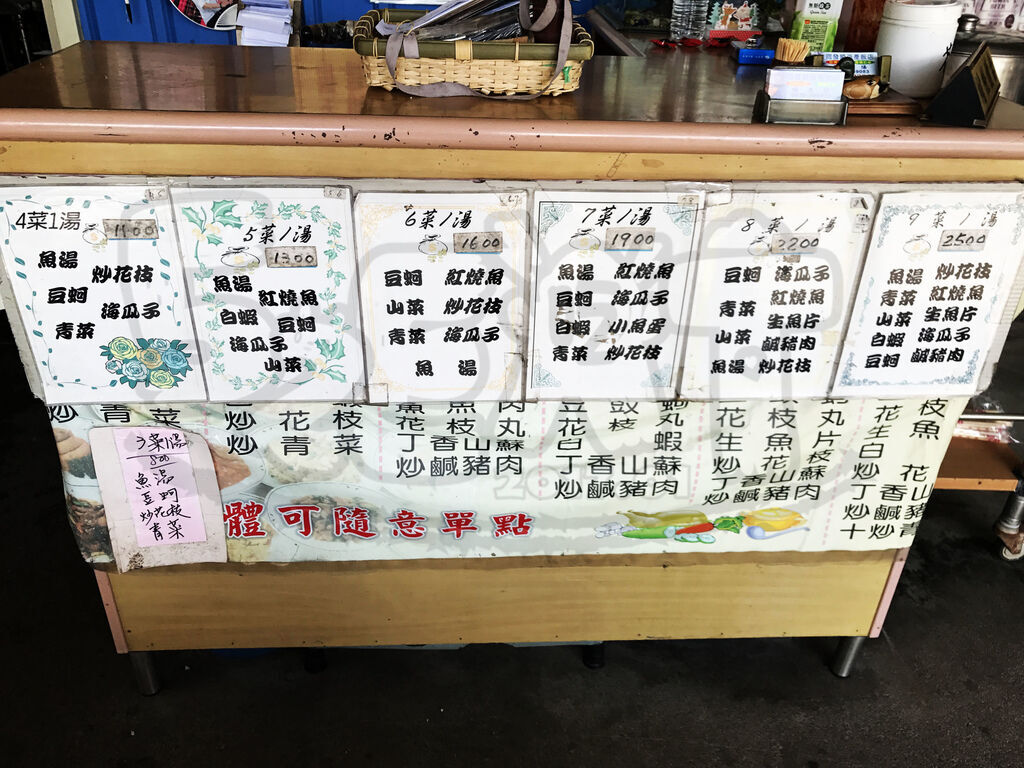 4菜1湯
1100
魚湯 炒花枝
豆蚵 海瓜子
青菜
5菜1湯
1300
魚湯 紅燒魚
白蝦 豆蚵
海瓜子
山菜
6菜1湯
1600
豆蚵 紅燒魚
山菜 炒花枝
青菜 海瓜子
魚湯
7菜1湯
1900
魚湯 紅燒魚
豆蚵 海瓜子
白蝦 小魚蛋
青菜 炒花枝
8菜1湯
2200
豆蚵 海瓜子
青菜 紅燒魚
山菜 生魚片
白蝦 鹹豬肉
魚湯 炒花枝
9菜1湯
2500
魚湯 炒花枝
青菜 紅燒魚
山菜 生魚片
白蝦 海瓜子
豆蚵 鹹豬肉
炒青菜
炒花枝
炒青菜
花枝丸
丁香山蘇
炒鹹豬肉
豆豉蚵
花枝丸
白蝦
丁香山蘇
炒鹹豬肉
花枝丸
生魚片
炒花枝
丁香山蘇
炒鹹豬肉
花枝
生魚
白
炒花
丁香山
炒鹹豬
十炒青
3菜1湯
800
魚湯
豆蚵
炒花枝
青菜
體可隨意單點